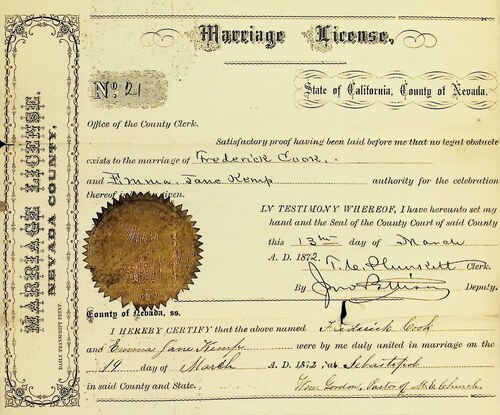 Marriage License,
No. 21
State of California, County of Nevada.
Office of the County Clerk.
Satisfactory proof having been laid before me that no legal obstacle
exists to the marriage of Frederick Cook.
and Emma Jane Kemp authority for the celebration
thereof is given.
IN TESTIMONY WHEREOF, I have hereunto set my
hand and the Seal of the County Court of said County
this 13th day of March
A. D. 1872.
T. C. Plunkett Clerk.
By Deputy.
County of Nevada, ss.
I HEREBY CERTIFY that the above named Frederick Cook
and Emma Jane Kemp were by me duly united in marriage on the
14 day of March A. D. 1872, at Sebastopol
in said County and State. Geo. Gordon, Pastor of M. E. Church.
MARRIAGE LICENSE.
NEVADA COUNTY.
DAILY TRANSCRIPT PRINT.